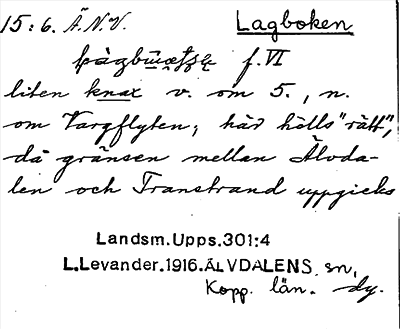 15:6. Ä.N.V. Lagboken
f. VI
liten knax v. om 5., n.
om Vargflyten; här hölls "rätt",
då gränsen mellan Älvda-
len och Transtrand uppgicks
Landsm.Upps.301:4
L.Levander.1916.ÄLVDALENS sn,
Kopp. län. dy.